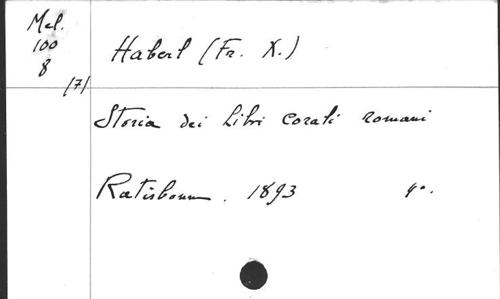 Mel.
100
8
(7)
Haberl (Fr. X.)
Storia dei Libri corali romani
Ratisbonn. 1893 4°.